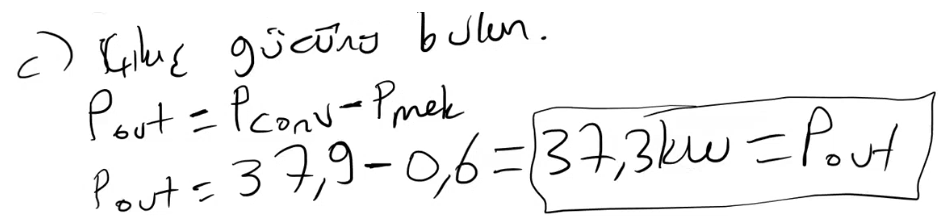 c) Çıkış gücünü bulun.
Pout = Pconv - Pmek
Pout = 37,9 - 0,6 = 37,3kw = Pout